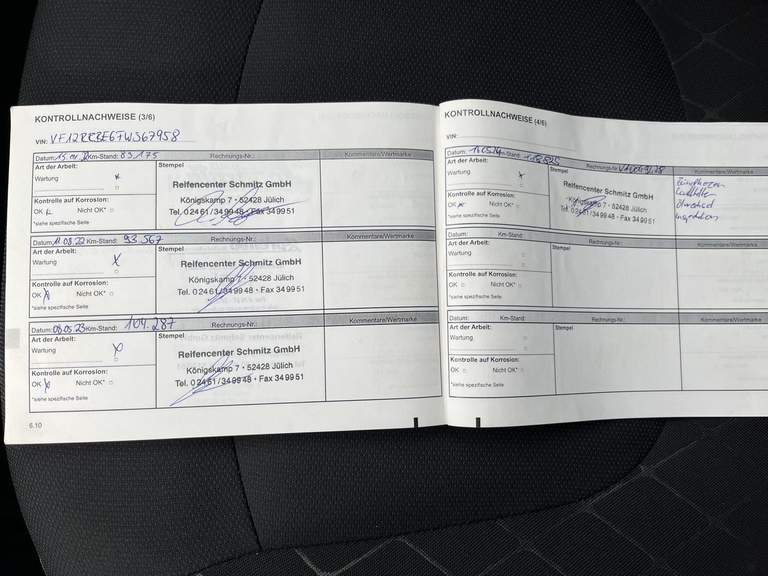 KONTROLLNACHWEISE (3/6)
VIN:
Datum: Km-Stand: Rechnungs-Nr.: Kommentare/Wertmarke
Art der Arbeit: Stempel
Wartung
Reifencenter Schmitz GmbH
Königskamp 7 • 52428 Jülich
Kontrolle auf Korrosion:
Tel. 02461/349948 • Fax 349951
OK Nicht OK*
*siehe spezifische Seite
Datum: 11.08.22 Km-Stand: 93 567 Rechnungs-Nr.: Kommentare/Wertmarke
Art der Arbeit: Stempel
Wartung
Reifencenter Schmitz GmbH
Königskamp 7 • 52428 Jülich
Kontrolle auf Korrosion:
Tel. 02461/349948 • Fax 349951
OK Nicht OK*
*siehe spezifische Seite
Datum: 08.05.23 Km-Stand: 104.287 Rechnungs-Nr.: Kommentare/Wertmarke
Art der Arbeit: Stempel
Wartung
Reifencenter Schmitz GmbH
Königskamp 7 • 52428 Jülich
Kontrolle auf Korrosion:
Tel. 02461/349948 • Fax 349951
OK Nicht OK*
*siehe spezifische Seite
6.10
KONTROLLNACHWEISE (4/6)
VIN:
Datum: Km-Stand: Rechnungs-Nr. Kommentare/Wertmarke
Art der Arbeit: Stempel
Wartung
Reifencenter Schmitz GmbH
Königskamp 7 • 52428 Jülich
Kontrolle auf Korrosion:
Tel. 02461/349948 • Fax 349951
OK Nicht OK*
*siehe spezifische Seite
Datum: Km-Stand: Rechnungs-Nr.: Kommentare/Wertmarke
Art der Arbeit: Stempel
Wartung
Kontrolle auf Korrosion:
OK Nicht OK*
*siehe spezifische Seite
Datum: Km-Stand: Rechnungs-Nr.: Kommentare/Wertmarke
Art der Arbeit: Stempel
Wartung
Kontrolle auf Korrosion:
OK Nicht OK*
*siehe spezifische Seite